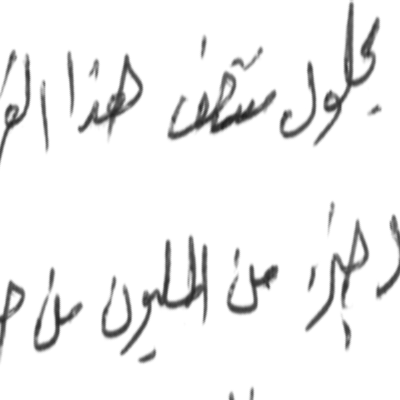 بحلول منتصف هذا القر
جزء من المليون من